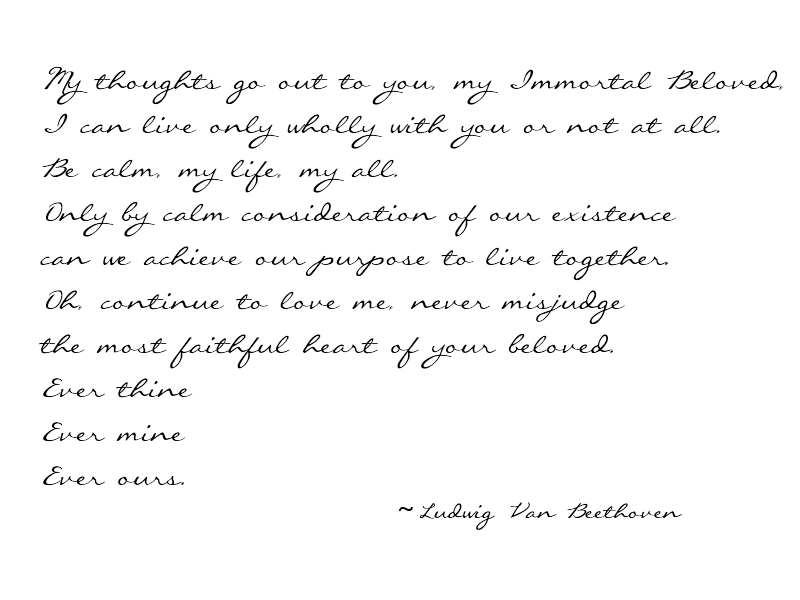 My thoughts go out to you, my Immortal Beloved,
I can live only wholly with you or not at all.
Be calm, my life, my all.
Only by calm consideration of our existence
can we achieve our purpose to live together.
Oh, continue to love me, never misjudge
the most faithful heart of your beloved.
Ever thine
Ever mine
Ever ours.
~ Ludwig Van Beethoven